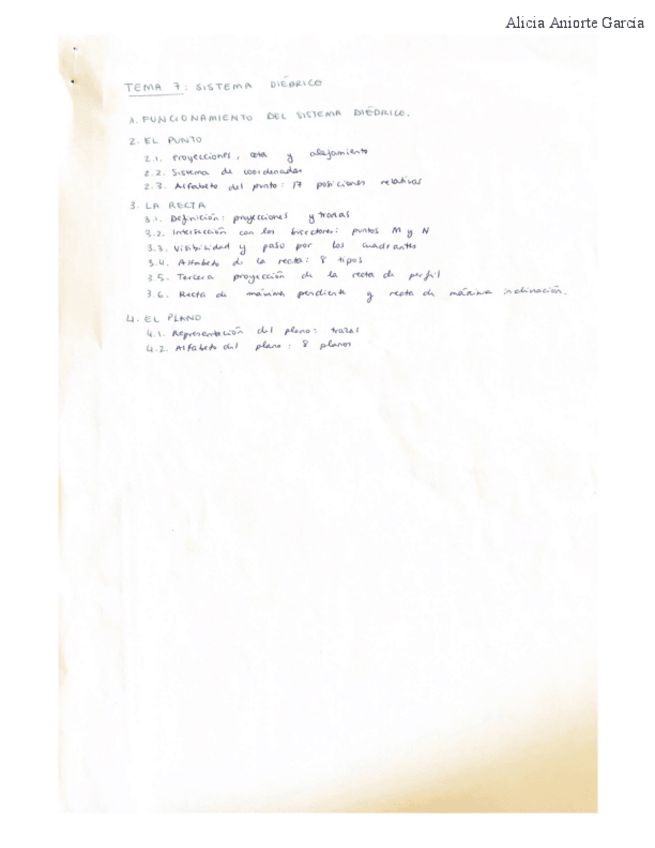 Alicia Aniorte García
TEMA 7: SISTEMA DIÉDRICO
1. FUNCIONAMIENTO DEL SISTEMA DIÉDRICO.
2. EL PUNTO
2.1. Proyecciones, cota y alejamiento
2.2. Sistema de coordenadas
2.3. Alfabeto del punto: 17 posiciones relativas
3. LA RECTA
3.1. Definición: proyecciones y trazas
3.2. Intersección con los bisectores: puntos M y N
3.3. Visibilidad y paso por los cuadrantes
3.4. Alfabeto de la recta: 8 tipos
3.5. Tercera proyección de la recta de perfil
3.6. Recta de máxima pendiente y recta de máxima inclinación.
4. EL PLANO
4.1. Representación del plano: trazas
4.2. Alfabeto del plano: 8 planos